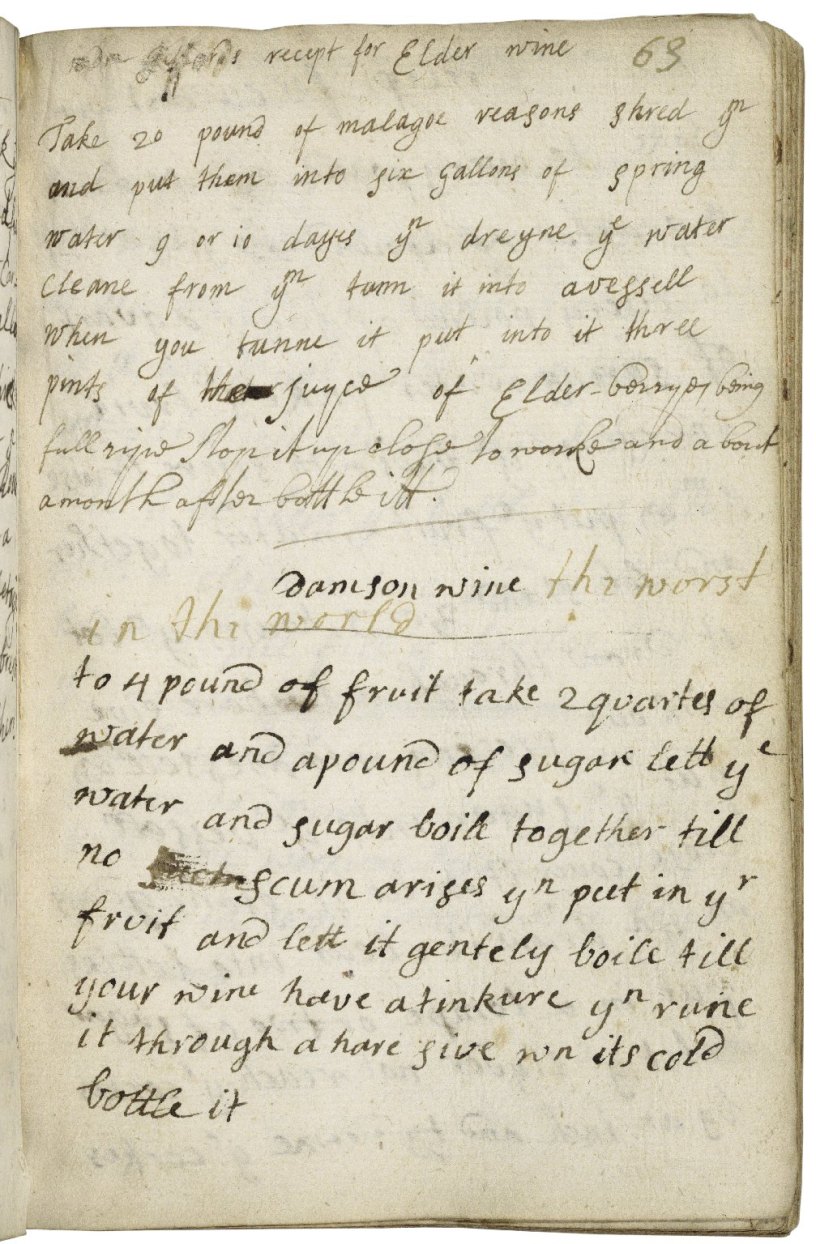 Giffords recept for Elder wine 63
Take 20 pound of malagoe reasons shred yn
and put them into six gallons of spring
water 9 or 10 dayes yn dreyne ye water
cleane from ym tunn it into avessell
when you tunne it put into it three
pints of the juyce of Elder-berryes being
full ripe stop it up close to worke and about
a month after bottle itt.
damson wine the worst
in the world
to 4 pound of fruit take 2 quartes of
water and a pound of sugar lett ye
water and sugar boile together till
no scum arises yn put in yr
fruit and lett it gentely boile till
your wine have a tinkure yn rune
it through a hare sive wn its cold
bottle it